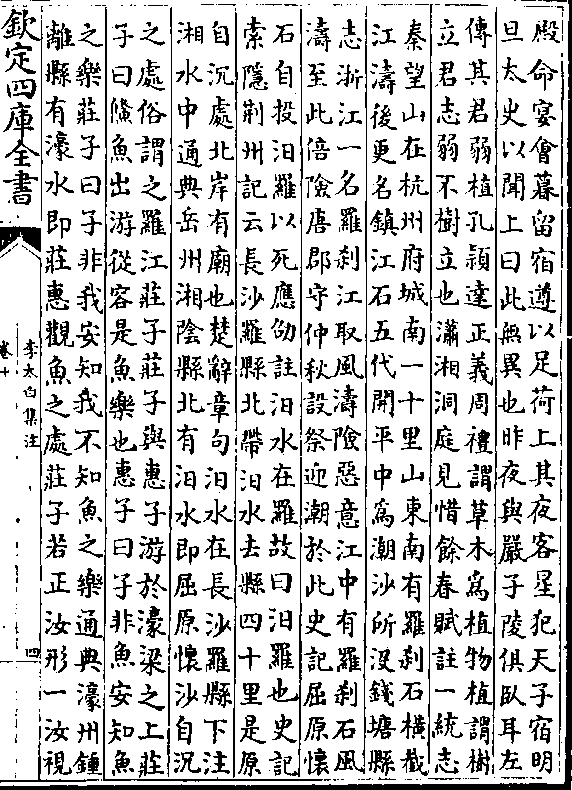 殿命宴會暮留宿遵以足荷上其夜客星犯天子宿明
旦太史以聞上曰此無異也昨夜與嚴子陵俱臥耳左
傳其君弱植孔頴達正義周禮謂草木為植物植謂樹
立君志弱不樹立也瀟湘洞庭見惜餘春賦註一統志
秦望山在杭州府城南一十里山東南有羅刹石橫截
江濤後更名鎮江石五代開平中為潮沙所没錢塘縣
志浙江一名羅刹江取風濤險惡意江中有羅刹石風
濤至此倍險唐郡守仲秋設祭迎潮於此史記屈原懷
石自投汨羅以死應劭註汨水在羅故曰汨羅也史記
索隱荆州記云長沙羅縣北帶汨水去縣四十里是原
自沉處北岸有廟也楚辭章句汨水在長沙羅縣下注
湘水中通典岳州湘陰縣北有汨水即屈原懷沙自沉
之處俗謂之羅江莊子莊子與惠子游於濠梁之上莊
子曰鯈魚出游從容是魚樂也惠子曰子非魚安知魚
之樂莊子曰子非我安知我不知魚之樂通典濠州鍾
離縣有濠水即莊惠觀魚之處莊子若正汝形一汝視
欽定四庫全書
李太白集注
卷十
四